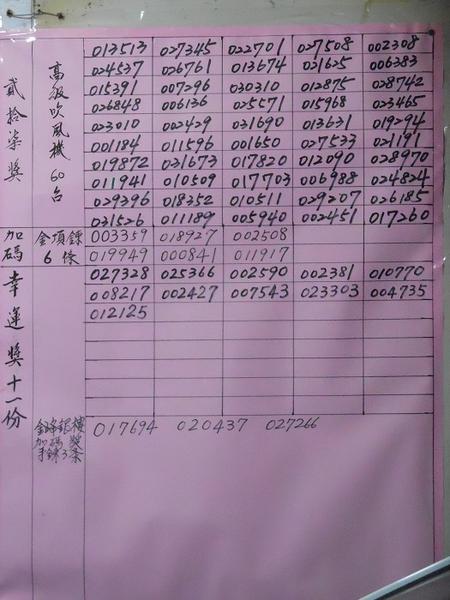 貳拾柒獎
高級吹風機60台
013513 027345 022701 027508 002308
024537 026761 013674 021625 006383
015391 007296 030310 012875 028742
026848 006136 025571 015968 023465
023010 002429 031690 013631 019294
001184 011596 001650 027533 021191
019872 031673 017820 012090 028970
011941 010509 017703 006988 024824
029396 018352 010511 029207 026185
031526 011189 005940 002451 017260
加碼
金項鍊
6條
003359 018927 002508
019949 000841 011917
幸運獎十一份
027328 025366 002590 002381 010770
008217 002427 007543 023303 004735
012125
加碼獎
手鍊3条
017694 020437 027266